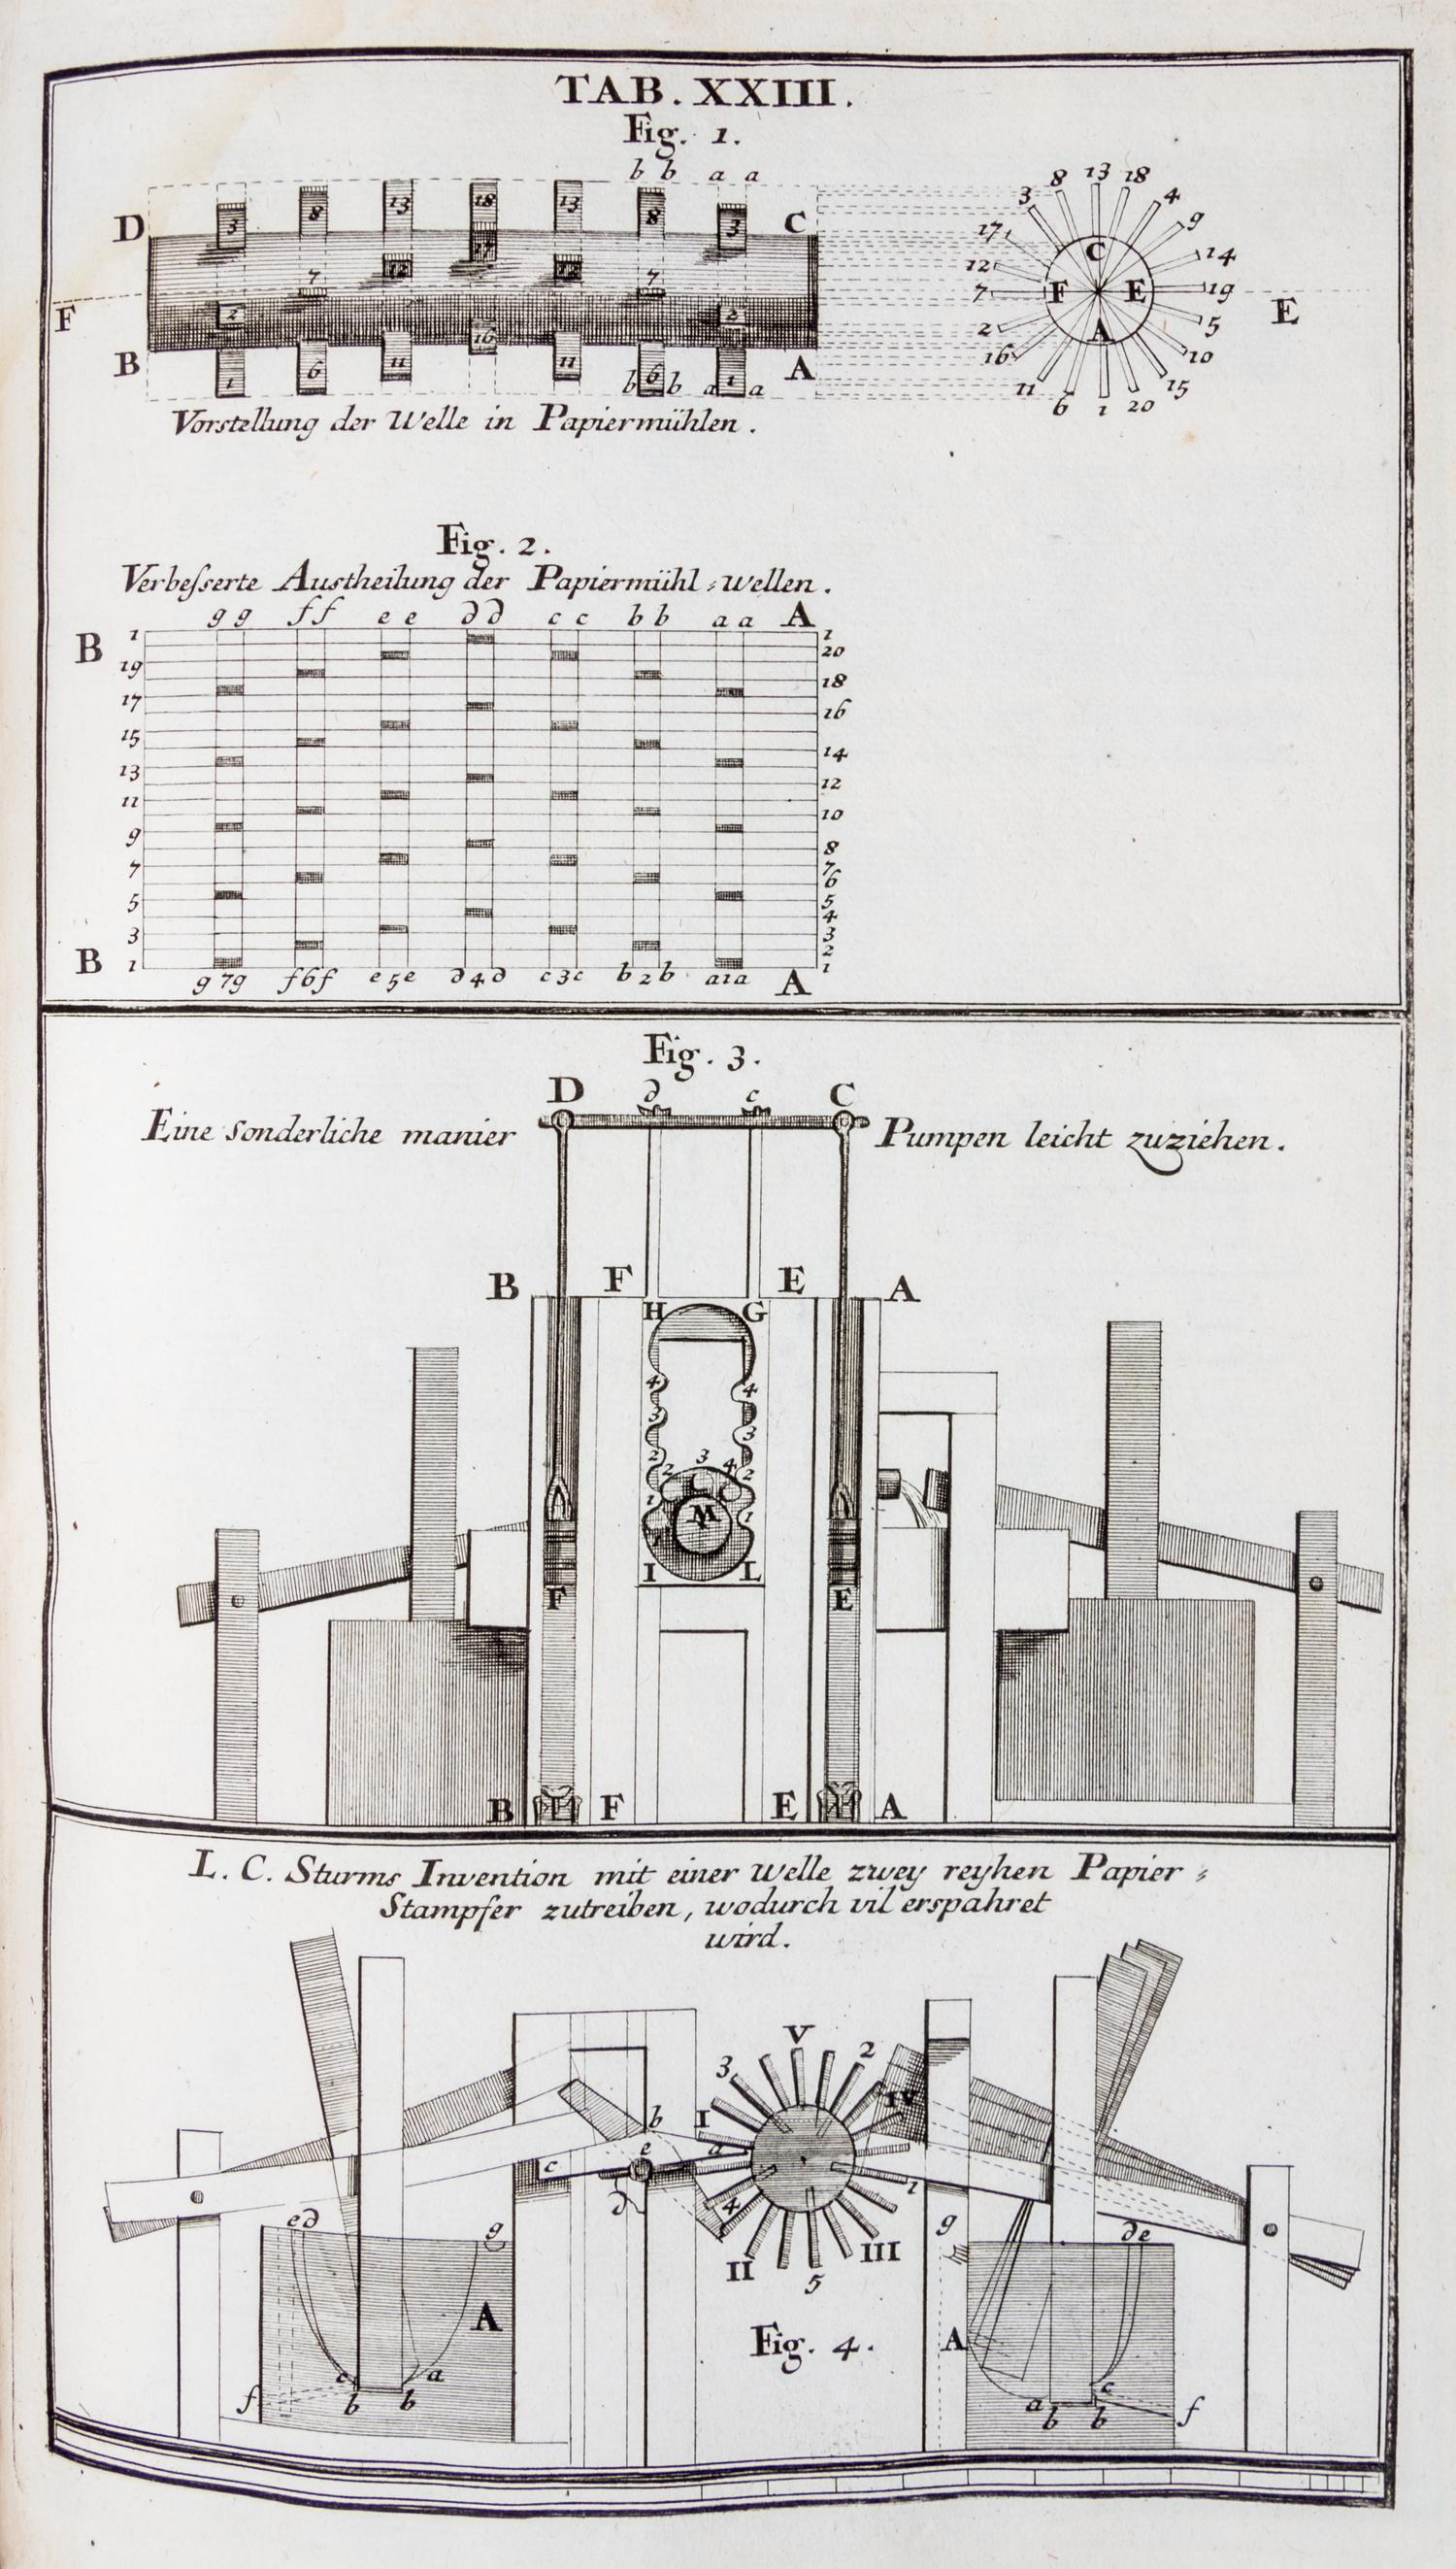 TAB. XXIII.
Fig. 1.
b b a a
D 3 8 13 18 13 8 3 C
17
12 12
7 7
F 2 2
16
B 1 6 11 11 b 6 b a 1 a A
3 8 13 18 4 9 14 19 5 10 15 20 1 6 11 16 2 7 12 17
C F E A E
Vorstellung der Welle in Papiermühlen.
Fig. 2.
Verbesserte Austheilung der Papiermühl-wellen.
g g f f e e d d c c b b a a A
B 1 1
20
19
18
17
16
15
14
13
12
11
10
9
8
7 7
6
5 5
4
3 3
2
B 1 1
g 7 g f 6 f e 5 e d 4 d c 3 c b 2 b a 1 a A
Fig. 3.
D d c C
Eine sonderliche manier Pumpen leicht zuziehen.
B F E A
H G
4 4
3 3
2 2 3 4 2
1 M 1
I L
F E
B F E A
L. C. Sturms Invention mit einer welle zwey reyhen Papier-
Stampfer zutreiben, wodurch vil erspahret
wird.
V
3 2
I IV
b
e a
c
d 4 1
II 5 III
e d g
A
c a
f b b
Fig. 4.
g d e
A
a c
b b f